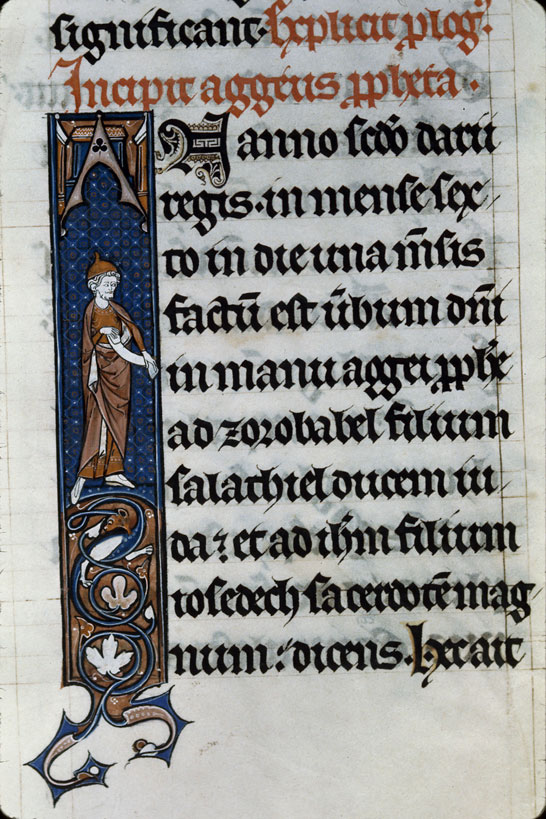 significant. Explicit plog᷒.
Incipit aggeus ꝓpheta.
IN anno scđo darii
regis. in mense sex
to in die una m̄sis
factū est ūbum dn̄i
in manu aggei ꝓphe
ad zorobabel filium
salathiel ducem iu
da⁊ et ad ih̄m filium
iosedech sacerdotē mag
num: dicens. Hec ait